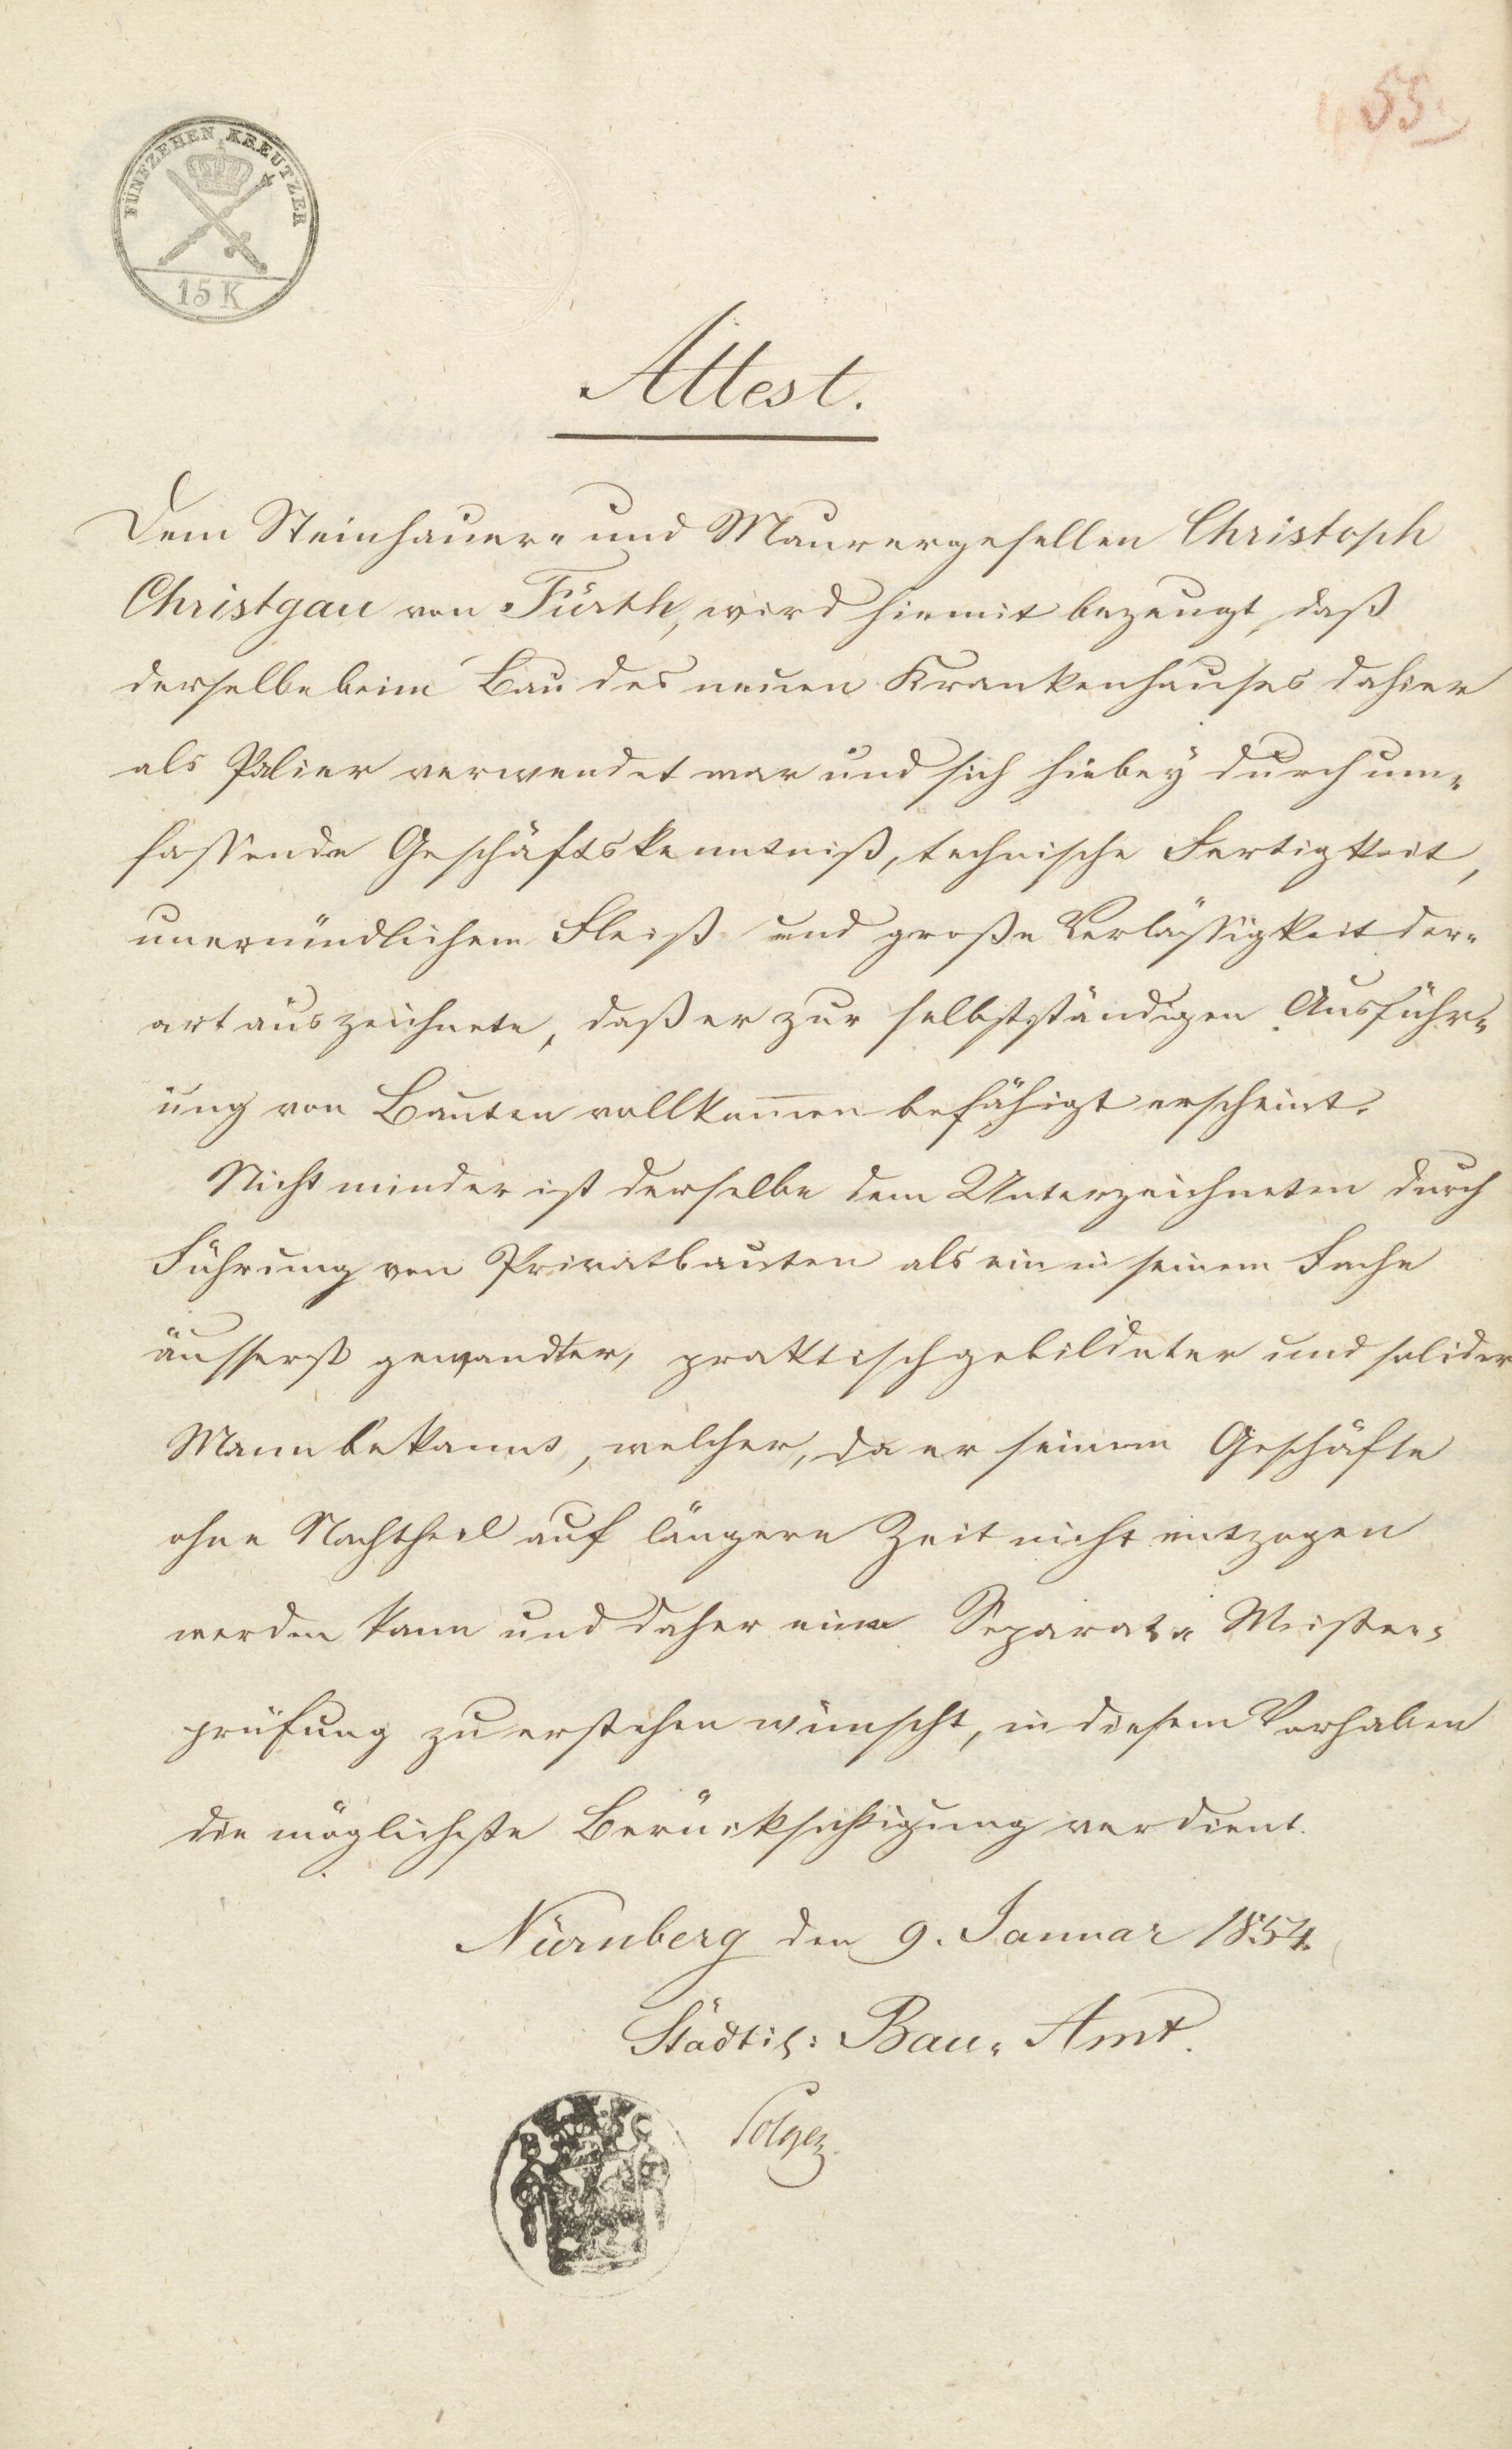 55.
FÜNFZEHEN KREUTZER
15 K
Attest.
Dem Steinhauer- und Maurergesellen Christoph
Christgau von Fürth, wird hiemit bezeugt, daß
derselbe beim Bau des neuen Krankenhauses dahier
als Palier verwendet war und sich hiebey durch um-
fassende Geschäftskenntniß, technische Fertigkeit,
unermüdlichem Fleiß und große Verläßigkeit der-
art auszeichnete, daß er zur selbstständigen Ausführ-
ung von Bauten vollkom̅en befähigt erscheint.
Nicht minder ist derselbe dem Unterzeichneten durch
Führung von Privatbauten als ein in seinem Fache
äusserst gewandter, praktisch gebildeter und solider
Mann bekannt, welcher, da er seinem Geschäfte
ohne Nachtheil auf längere Zeit nicht entzogen
werden kann und daher eine Separat- Meister-
prüfung zu erstehen wünscht, in diesem Vorhaben
die möglichste Berücksichtigung verdient.
Nürnberg den 9. Januar 1854.
Städtis: Bau- Amt.
Solger